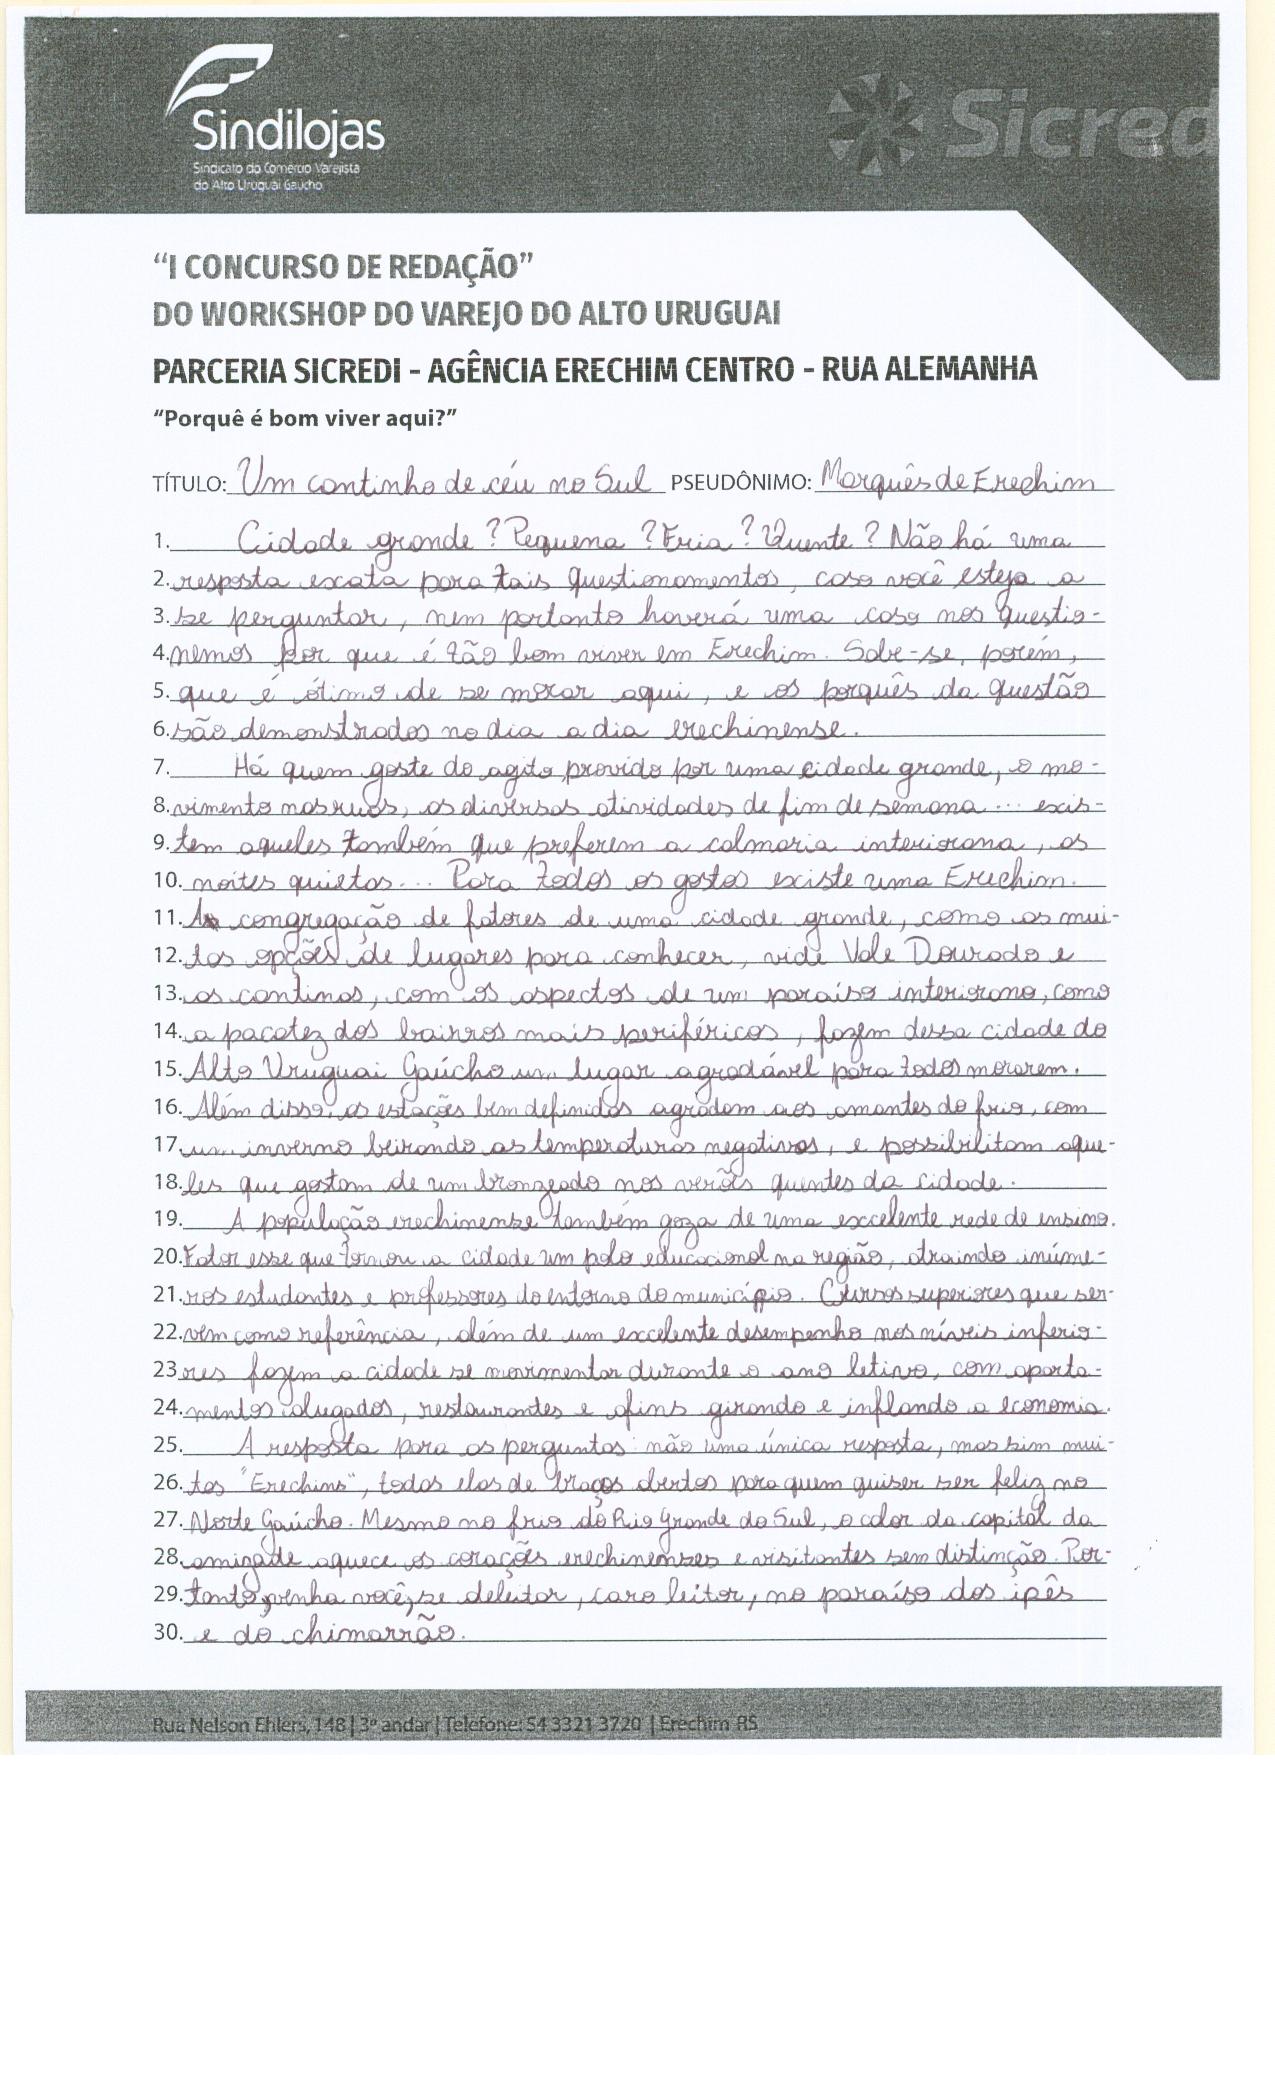 Sindilojas
Sindicato do Comércio Varejista
do Alto Uruguai Gaúcho
Sicred
“I CONCURSO DE REDAÇÃO”
DO WORKSHOP DO VAREJO DO ALTO URUGUAI
PARCERIA SICREDI - AGÊNCIA ERECHIM CENTRO - RUA ALEMANHA
“Porquê é bom viver aqui?”
TÍTULO: Um cantinho de céu no Sul PSEUDÔNIMO: Marquês de Erechim
1. Cidade grande? Pequena? Fria? Quente? Não há uma
2. resposta exata para tais questionamentos, caso você esteja a
3. se perguntar, nem portanto haverá uma caso nos questio-
4. nemos por que é tão bom viver em Erechim. Sabe-se, porém,
5. que é ótimo de se morar aqui, e os porquês da questão
6. são demonstrados no dia a dia erechinense.
7. Há quem goste do agito provido por uma cidade grande, o mo-
8. vimento nas ruas, as diversas atividades de fim de semana... exis-
9. tem aqueles também que preferem a calmaria interiorana, as
10. noites quietas... Para todos os gostos existe uma Erechim.
11. A congregação de fatores de uma cidade grande, como as mui-
12. tas opções de lugares para conhecer, vide Vale Dourado e
13. as cantinas, com os aspectos de um paraíso interiorano, como
14. a pacatez dos bairros mais periféricos, fazem dessa cidade do
15. Alto Uruguai Gaúcho um lugar agradável para todos morarem.
16. Além disso, as estações bem definidas agradam aos amantes do frio, com
17. um inverno beirando as temperaturas negativas, e possibilitam aque-
18. les que gostam de um bronzeado nos verões quentes da cidade.
19. A população erechinense também goza de uma excelente rede de ensino.
20. Fator esse que tornou a cidade um polo educacional na região, atraindo inúme-
21. ros estudantes e professores do entorno do município. Cursos superiores que ser-
22. vem como referência, além de um excelente desempenho nos níveis inferio-
23 res fazem a cidade se movimentar durante o ano letivo, com aparta-
24. mentos alugados, restaurantes e afins girando e inflando a economia.
25. A resposta para as perguntas: não uma única resposta, mas sim mui-
26. tas "Erechins", todas elas de braços abertos para quem quiser ser feliz no
27. Norte Gaúcho. Mesmo no frio do Rio Grande do Sul, o calor da capital da
28. amizade aquece os corações erechinenses e visitantes sem distinção. Por-
29. tanto, venha você, se deleitar, caro leitor, no paraíso dos ipês
30. e do chimarrão.
Rua Nelson Ehlers, 148 | 3º andar | Telefone: 54 3321 3720 | Erechim-RS